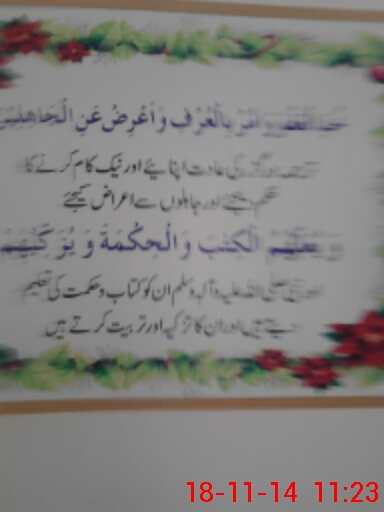 خذ العفو وامر بالعرف واعرض عن الجاهلين
درگزر کی عادت اپنایئے اور نیک کام کرنے کا
حکم دیجئے اور جاہلوں سے اعراض کیجئے
ويعلمهم الكتب والحكمة و يزكيهم
صلی اللہ علیہ وآلہ وسلم ان کو کتاب و حکمت کی تعلیم
دیتے ہیں اور ان کا تزکیہ اور تربیت کرتے ہیں
18-11-14 11:23